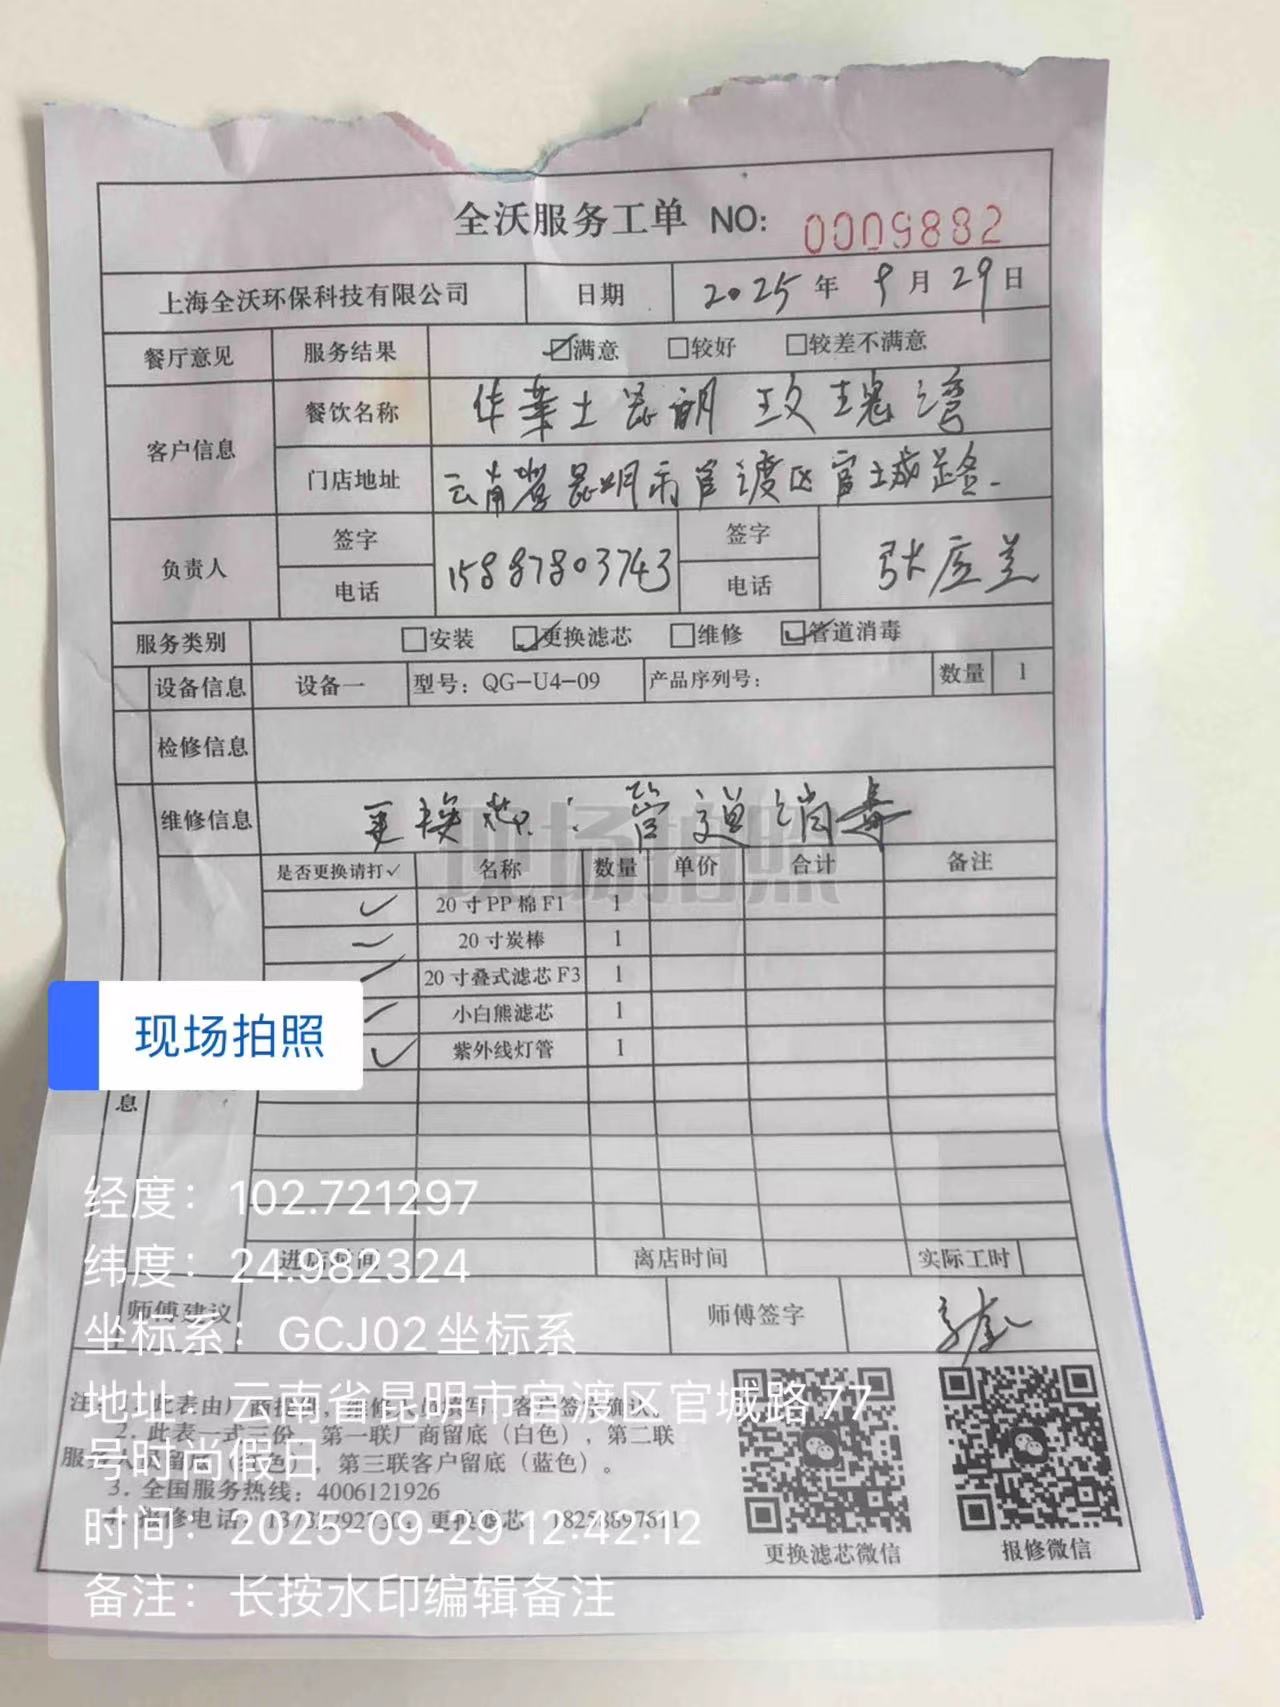 全沃服务工单 NO: 0009882
上海全沃环保科技有限公司 日期 2025年9月29日
餐厅意见 服务结果 ☑满意 □较好 □较差不满意
客户信息 餐饮名称 华莱士昆明玫瑰湾
门店地址 云南省昆明市官渡区官城路.
负责人 签字 电话 15887803743 签字 电话 张应兰
服务类别 □安装 ☑更换滤芯 □维修 ☑管道消毒
设备信息 设备一 型号：QG-U4-09 产品序列号： 数量 1
检修信息
维修信息 更换芯：管道消毒
现场拍照
是否更换请打✓ 名称 数量 单价 合计 备注
✓ 20寸PP棉F1 1
✓ 20寸炭棒 1
✓ 20寸叠式滤芯F3 1
✓ 小白熊滤芯 1
✓ 紫外线灯管 1
现场拍照
息
进店时间 离店时间 实际工时
师傅建议 师傅签字
注：1.此表由厂商提供，维修人员填写，客户签字确认。
2.此表一式三份，第一联厂商留底（白色），第二联
服务人员留底（红色），第三联客户留底（蓝色）。
3. 全国服务热线：4006121926
更换滤芯微信 报修微信
经度：102.721297
纬度：24.982324
坐标系：GCJ02坐标系
地址：云南省昆明市官渡区官城路77
号时尚假日
时间：2025-09-29 12:42:12
备注：长按水印编辑备注